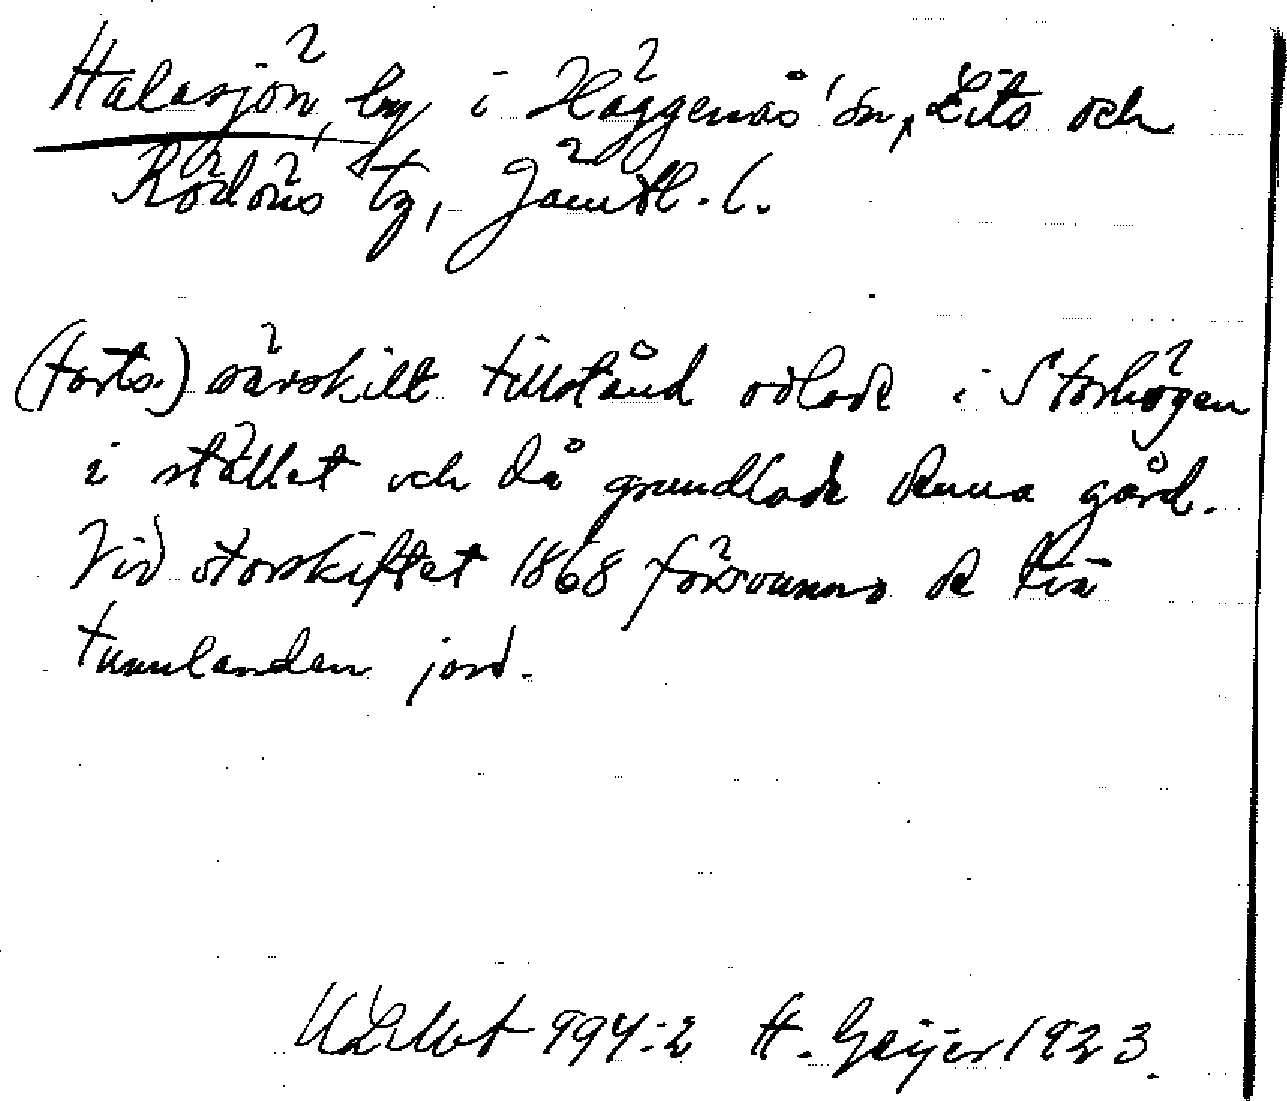 Halasjön, by i Häggenås sn, Lits och
Rödöns tg, Jämtl. l.
(forts.) särskilt tillstånd odlade i Storhögen
i stället och då grundlade denna gård.
Vid storskiftet 1868 försvunno de två
tunnlanden jord.
ULMA 994:2 H. Geijer 1923.